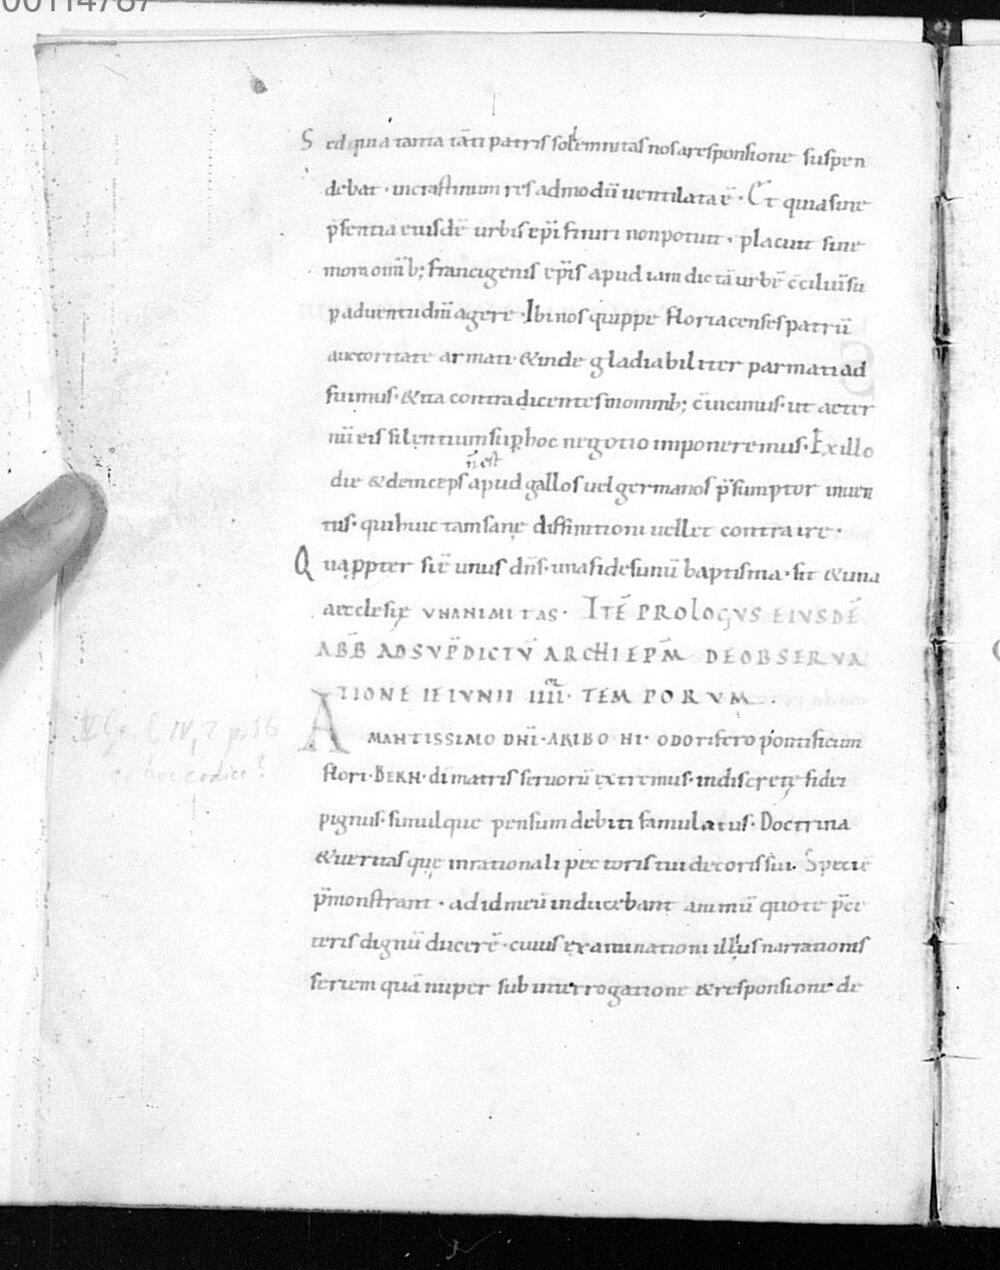 00114787
Sed quia tanta tāti patris solemnitas nos a responsione suspen
debat · in crastinum res admodū uentilata ē · Et quia sine
p̄sentia eiusdē urbis ep̄i finiri non potuit · placuit sine
mora omīb; francigenis ep̄is apud iam dictā urbē c̄ciliū su
p aduentu dn̄i agere · Ibi nos quippe floriacenses patrū
auctoritate armati · & inde gladiabiliter parmati ad
fuimus · & ita contradicentes in omnib; c̄uicimus · ut aeter
nū eis silentium sup hoc negotio imponeremus · Ex illo
n̄ est
die & deinceps apud gallos uel germanos p̄sumptor inuen
tus · qui huic tam sanę diffinitioni uellet contraire ·
Quappter sic̄ unus dn̄s · una fides unū baptisma · sit & una
aecclesię VNANIMITAS · ITĒ PROLOGVS EIVSDĒ
ABB̄ AD SVP̄DICTV̄ ARCHIEPM̄ DE OBSERVA
TIONE IEIVNII IIII TEMPORVM
AMANTISSIMO DN̄I · ARIBONI · ODORIfero pontificum
flori · BERN · dī matris seruorū extremus · indiscretę fidei
pignus · simulque pensum debiti famulatus · Doctrina
& ueritas que in rationali pectoris tui decoris sui · Speciē
p̄monstrant · ad id meū inducebant animū quo te p̄ce
teris dignū ducerē · cuius examinationi illius narrationis
seriem quā nuper sub interrogatione & responsione de